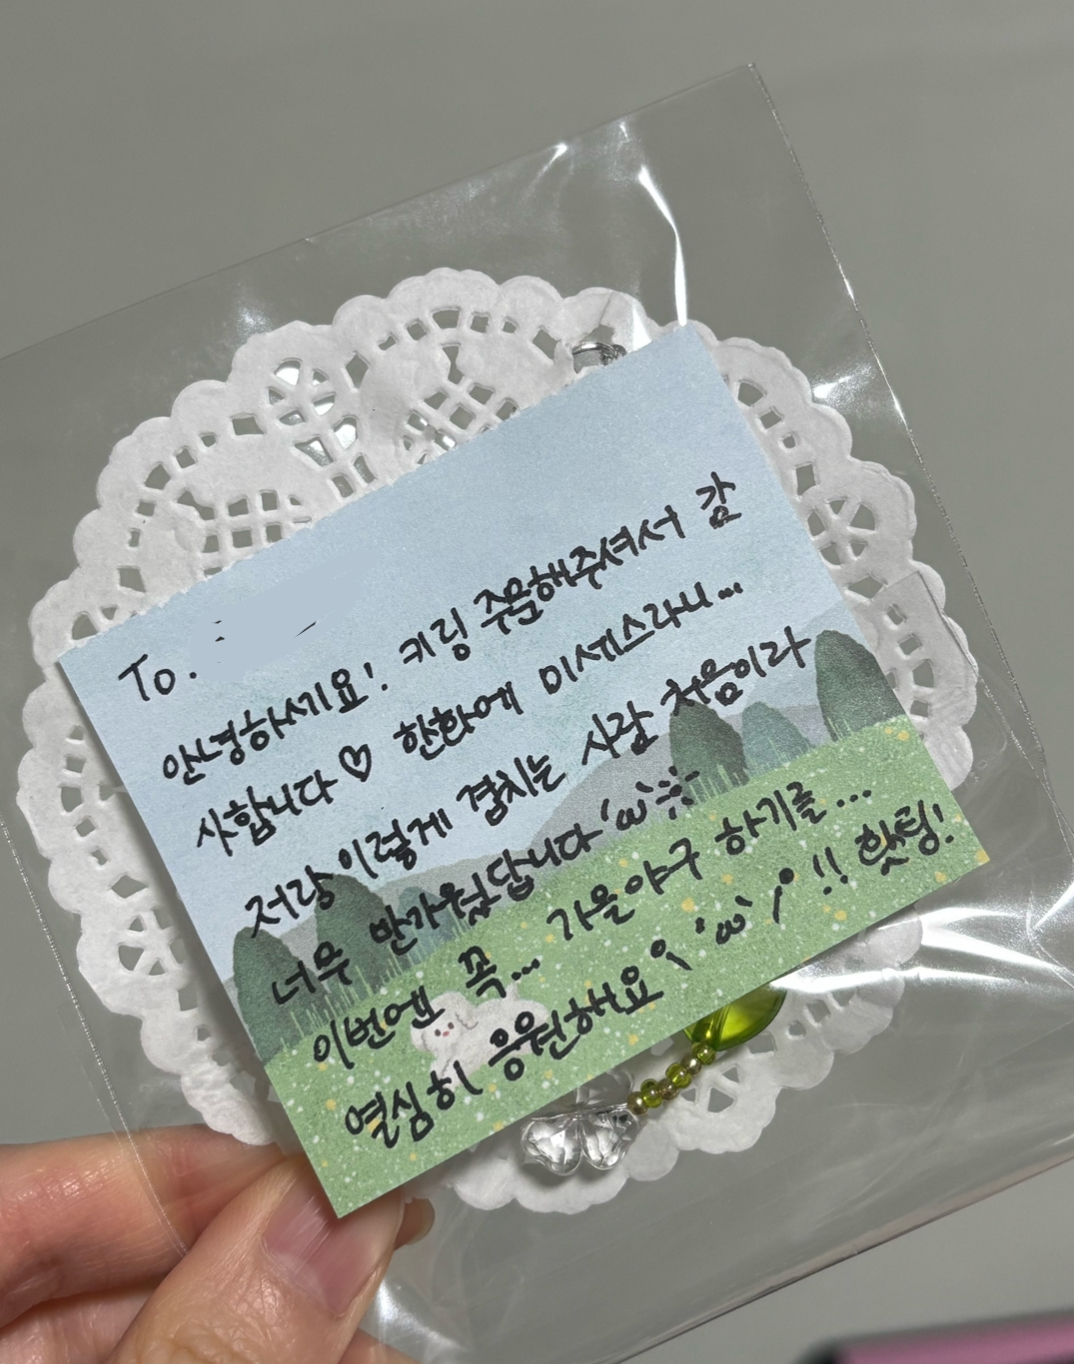 To.
안녕하세요! 키링 주문해주셔서 감
사합니다♡ 한화에 미세스라니...
저랑 이렇게 겹치는 사람 처음이라
너무 반가웠답니다 'ω'
이번엔 꼭... 가을야구 하기를...
열심히 응원해요 'ω' !! 핫팅!